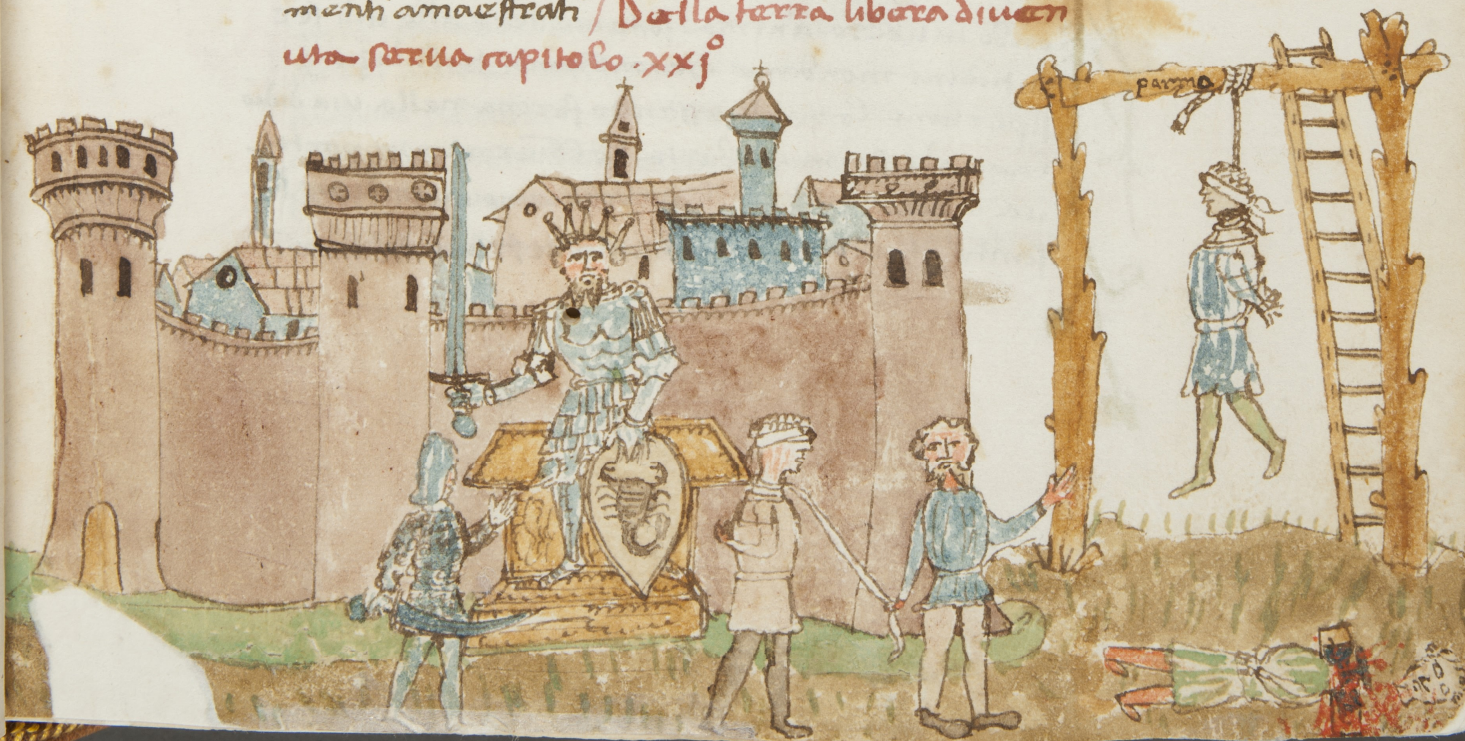 menti amaestrati / Della terra libera diven
uta serva capitolo · xxjº
parma